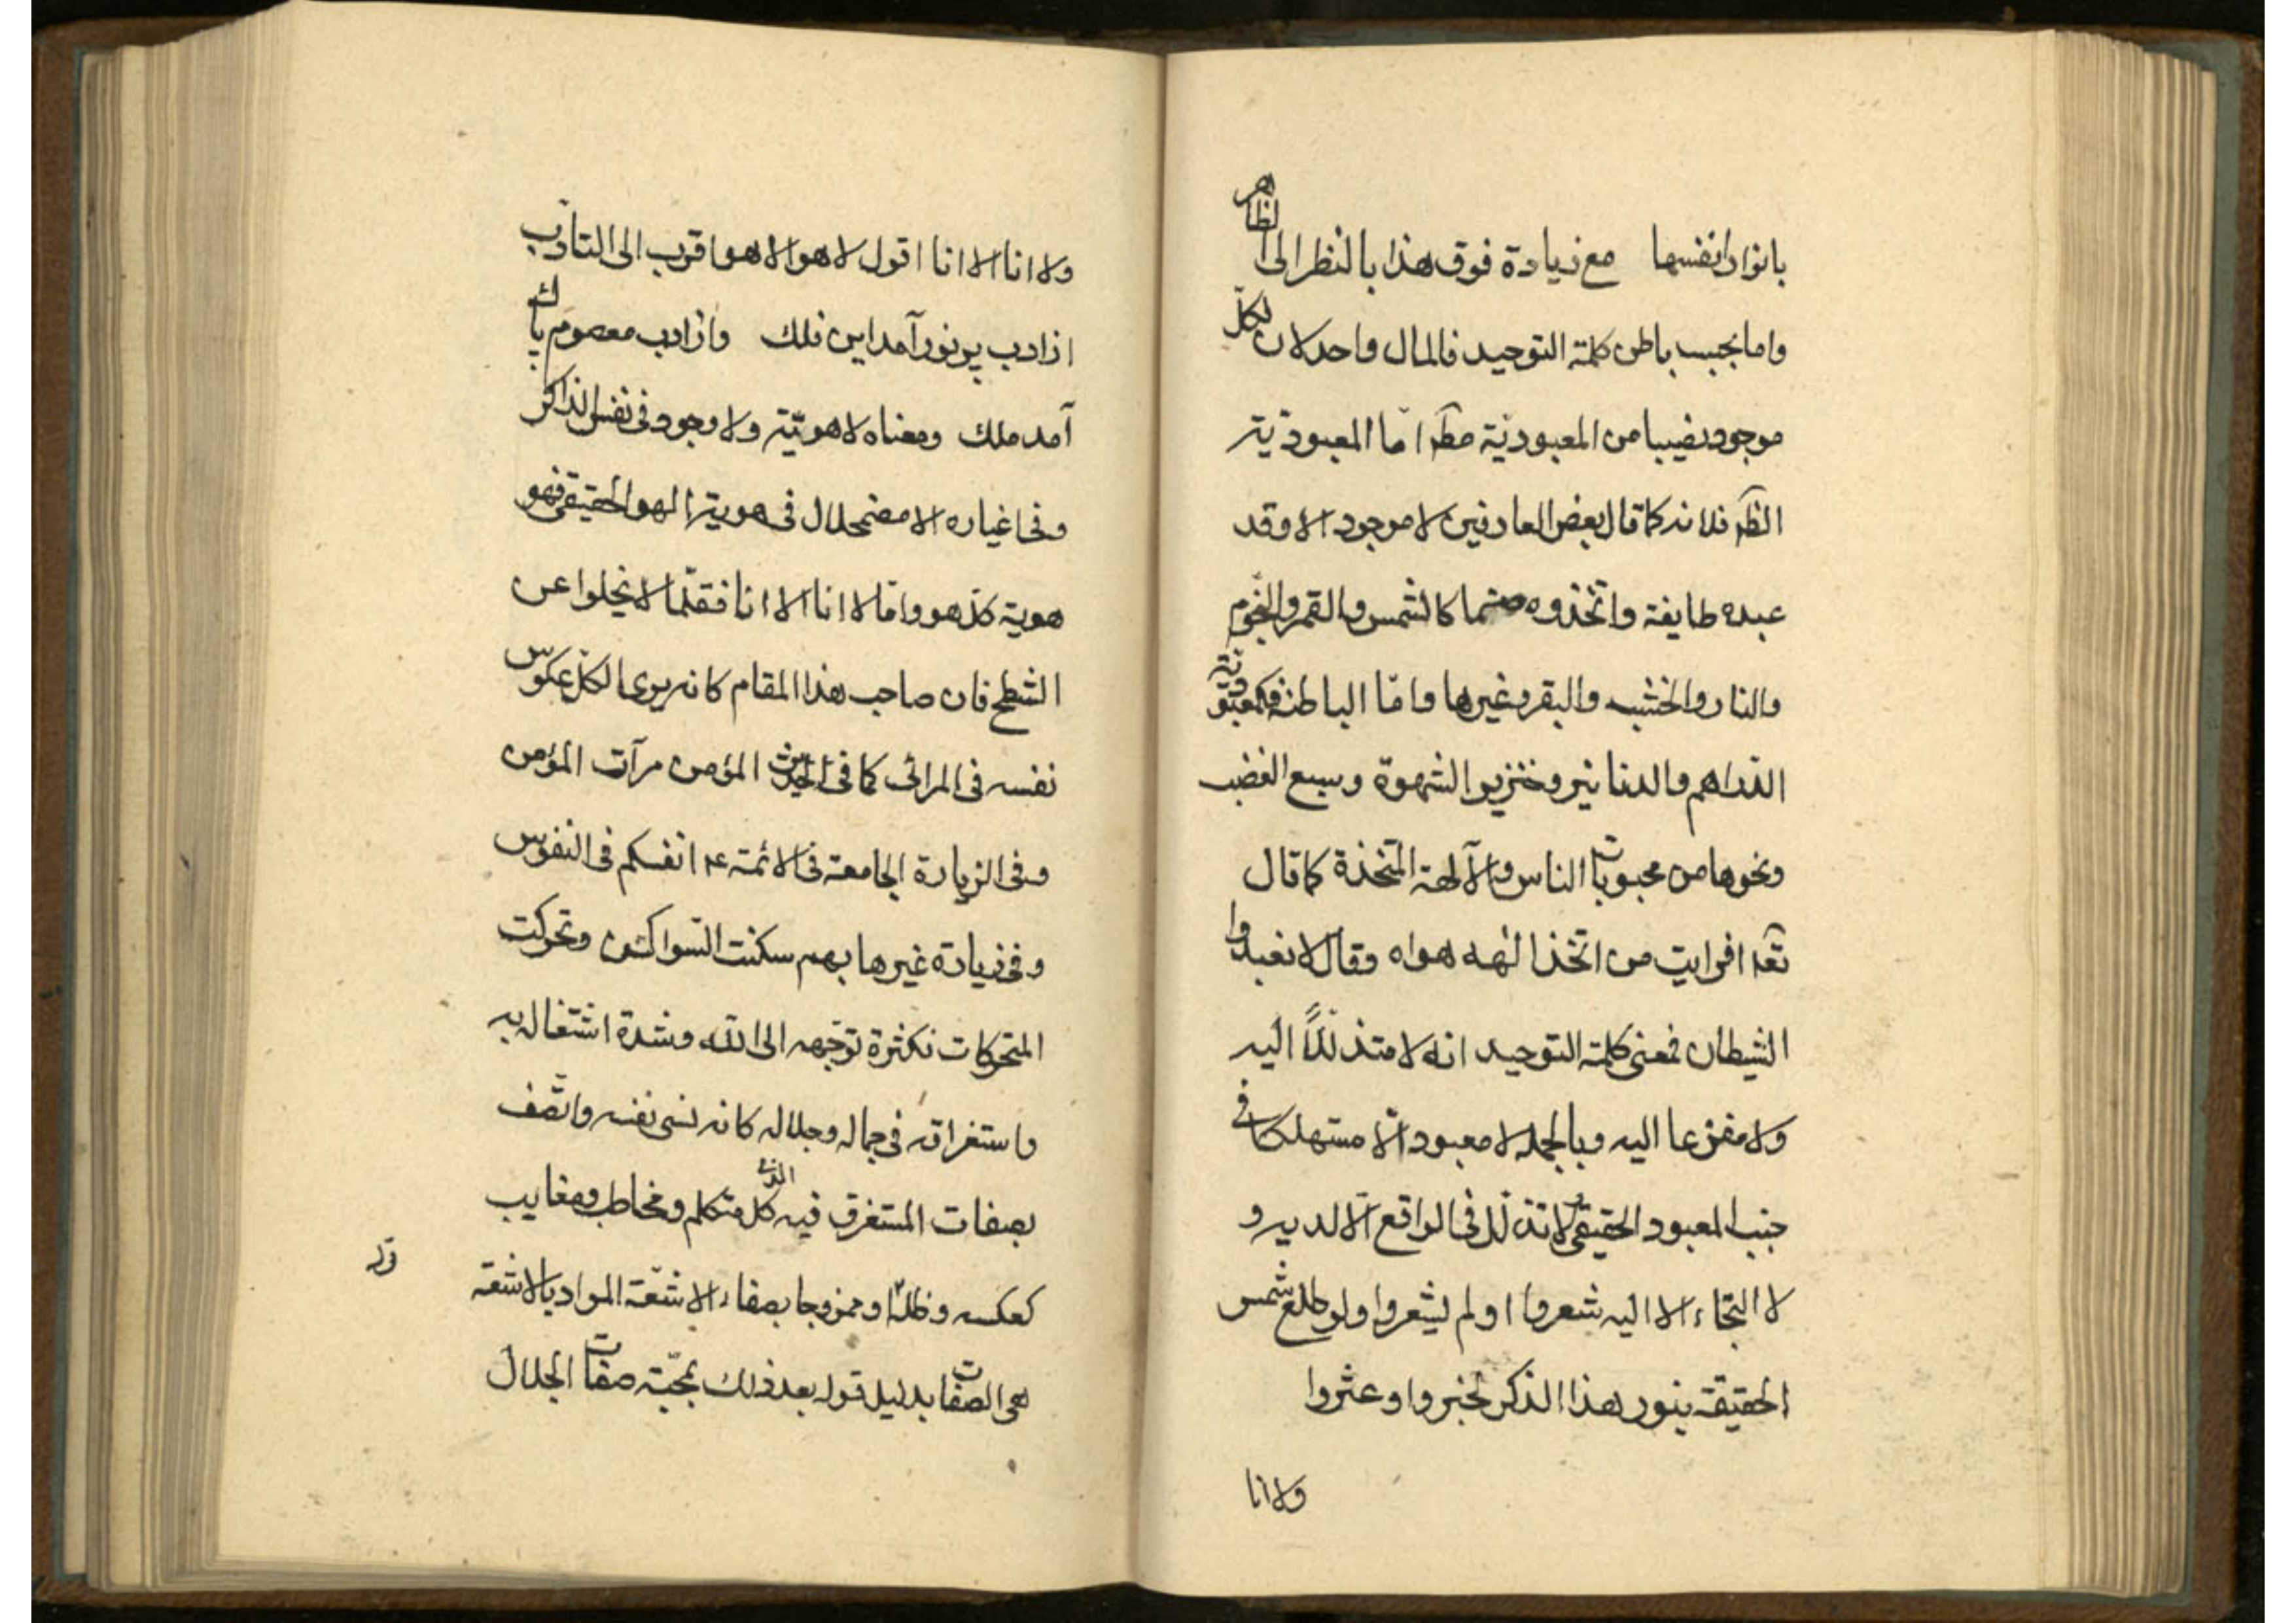 بانوار انفسها مع زيادة فوق هذا بالنظر الى الظاهر
واما بحسب باطن كلمة التوحيد فالمال واحد لان لكل
موجود نصيبا من المعبودية مطا امّا المعبودية
الظه فلانه كما قال بعض العارفين لا موجود الا وقد
عبده طايفة واتخذوه صنما كالشمس والقمر والنجوم
والنار والخشب والبقر وغيرها وامّا الباطنة فكمعبودية
الدراهم والدنانير وخنزير الشهوة وسبع الغضب
ونحوها من محبوبات الناس والآلهة المتخذة كما قال
تعا افرايت من اتخذ الهه هواه وقال لا تعبدوا
الشيطان فمعنى كلمة التوحيد انه لا متذللاً اليه
ولا مفزعا اليه وبالجملة لا معبود الّا مستهلكا في
جنب المعبود الحقيقي ولا تذلل في الواقع الّا لديه و
لا التجاء الا اليه شعروا او لم يشعروا ولو طلع شمس
الحقيقة بنور هذا الذكر لخبروا وعثروا
ولا انا
ولا انا الا انا اقول لا هو الا هو اقرب الى التادّب
از ادب پر نور آمد اين فلك واز ادب معصوم پاك
آمد ملك ومعناه لا هويّة ولا وجود في نفس الذاكر
وفي اغياره الا مضمحلال في هوية الهو الحقيقي فهو
هوية كل هو وامّا لا انا الا انا فقلّما لا يخلوا عن
الشطح فان صاحب هذا المقام كانه يرى الكل عكوس
نفسه في المرائى كما في الحديث المؤمن مرآت المؤمن
وفي الزيارة الجامعة في الائمة ع انفسكم في النفوس
وفي زيارة غيرها بهم سكنت السواكن وتحركت
المتحركات فكثرة توجّهه الى الله وشدة اشتغاله به
واستغراقه في جماله وجلاله كانه نسى نفسه واتّصف
بصفات المستغرق فيه الذى كل متكلم ومخاطب ومغايب
كعكسه وظلّه او ممزوجا بصفاء الاشعّة المراد بالاشعة
هى الصفات بدليل قوله بعد ذلك بمحبّة صفات الجلال